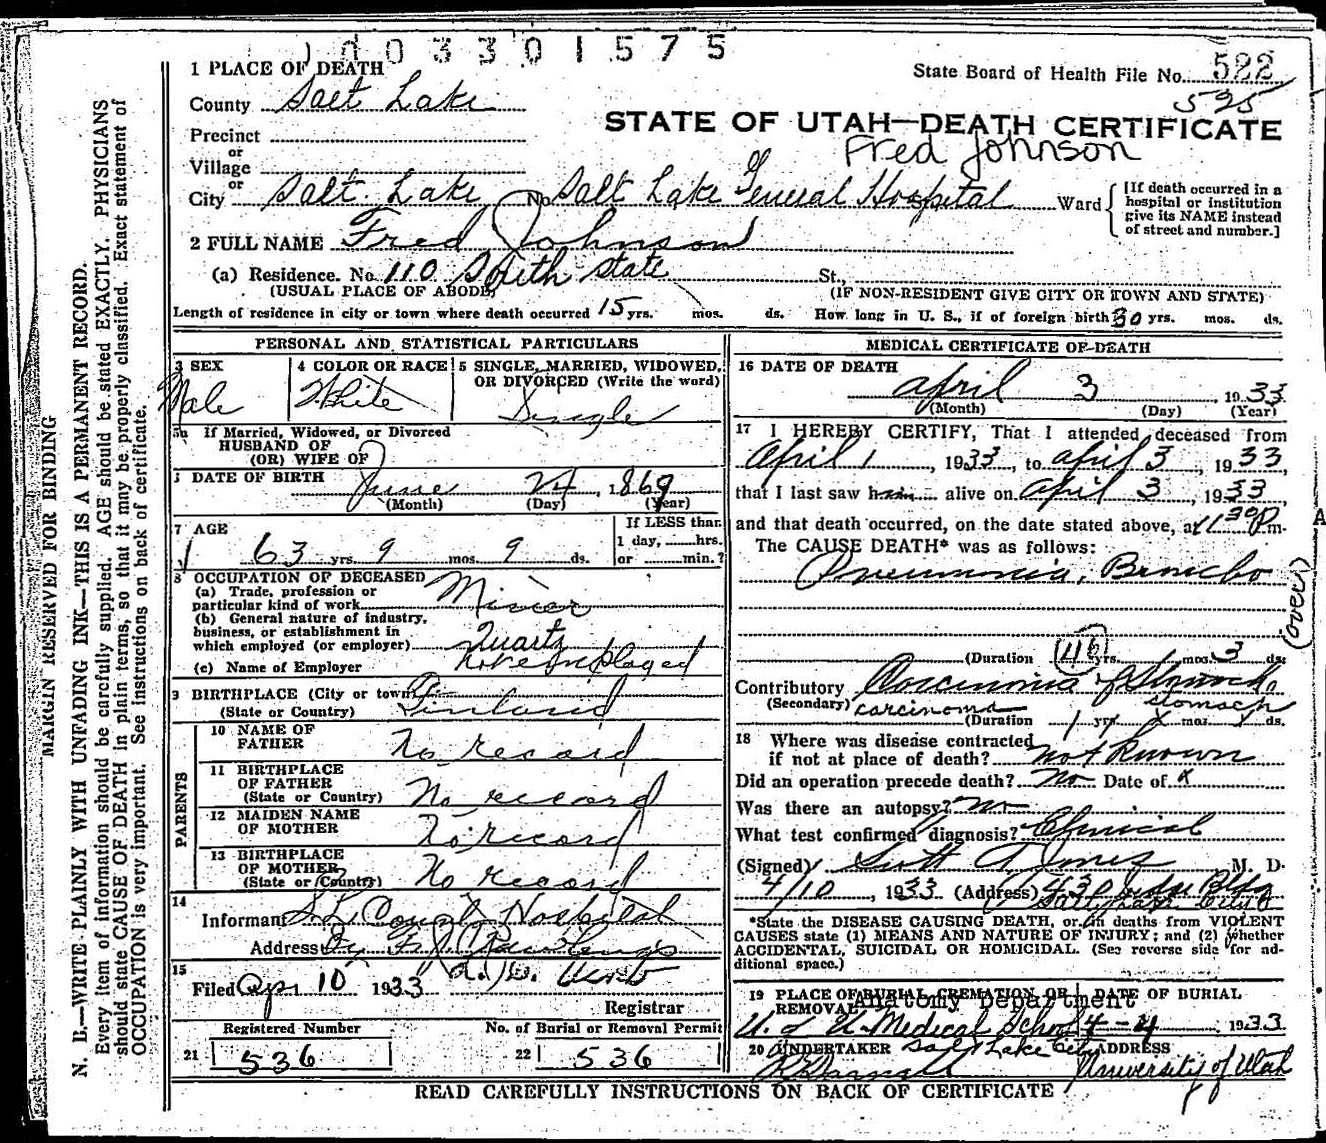 1003301575
1 PLACE OF DEATH
State Board of Health File No. 522
County Salt Lake
525
STATE OF UTAH—DEATH CERTIFICATE
Precinct
Fred Johnson
or
Village
or
City Salt Lake No. Salt Lake General Hospital Ward
[If death occurred in a
hospital or institution
give its NAME instead
of street and number.]
2 FULL NAME Fred Johnson
(a) Residence. No. 110 South State St.,
(USUAL PLACE OF ABODE)
(IF NON-RESIDENT GIVE CITY OR TOWN AND STATE)
Length of residence in city or town where death occurred 15 yrs. mos. ds. How long in U. S., if of foreign birth 30 yrs. mos. ds.
PERSONAL AND STATISTICAL PARTICULARS
3 SEX
Male
4 COLOR OR RACE
White
5 SINGLE, MARRIED, WIDOWED,
OR DIVORCED (Write the word)
Single
5a If Married, Widowed, or Divorced
HUSBAND OF
(OR) WIFE OF
DATE OF BIRTH June 24, 1869
(Month) (Day) (Year)
7 AGE
63 yrs. 9 mos. 9 ds.
If LESS than
1 day, hrs.
or min.?
8 OCCUPATION OF DECEASED
(a) Trade, profession or
particular kind of work Miner
(b) General nature of industry,
business, or establishment in
which employed (or employer) Quartz
(c) Name of Employer not employed
9 BIRTHPLACE (City or town)
(State or Country) Finland
PARENTS
10 NAME OF
FATHER No record
11 BIRTHPLACE
OF FATHER
(State or Country) No record
12 MAIDEN NAME
OF MOTHER No record
13 BIRTHPLACE
OF MOTHER
(State or Country) No record
14
Informant S. L. County Hospital
Address By
15
Filed Apr 10 1933
Registrar
Registered Number
21 536
No. of Burial or Removal Permit
22 536
MEDICAL CERTIFICATE OF DEATH
16 DATE OF DEATH
April 3, 1933
(Month) (Day) (Year)
17 I HEREBY CERTIFY, That I attended deceased from
April 1, 1933, to April 3, 1933,
that I last saw him alive on April 3, 1933
and that death occurred, on the date stated above, at 11 30 P m.
The CAUSE DEATH* was as follows:
Pneumonia, Broncho
(over)
(Duration yrs. mos. 3 ds.
Contributory Carcinoma of Stomach
(Secondary) carcinoma stomach
(Duration 1 yrs. x mos. x ds.
18 Where was disease contracted
if not at place of death? not known
Did an operation precede death? No Date of x
Was there an autopsy? no
What test confirmed diagnosis? Clinical
(Signed) M. D.
4/10, 1933 (Address) 430 Judge Bldg
Salt Lake City
*State the DISEASE CAUSING DEATH, or in deaths from VIOLENT
CAUSES state (1) MEANS AND NATURE OF INJURY; and (2) whether
ACCIDENTAL, SUICIDAL OR HOMICIDAL. (See reverse side for ad-
ditional space.)
19 PLACE OF BURIAL, CREMATION OR
REMOVAL Anatomy Department
DATE OF BURIAL
U. of U. Medical School 4-4 1933
20 UNDERTAKER Salt Lake City ADDRESS
University of Utah
READ CAREFULLY INSTRUCTIONS ON BACK OF CERTIFICATE
MARGIN RESERVED FOR BINDING
N. B.—WRITE PLAINLY WITH UNFADING INK—THIS IS A PERMANENT RECORD.
Every item of information should be carefully supplied. AGE should be stated EXACTLY. PHYSICIANS
should state CAUSE OF DEATH in plain terms, so that it may be properly classified. Exact statement of
OCCUPATION is very important. See instructions on back of certificate.